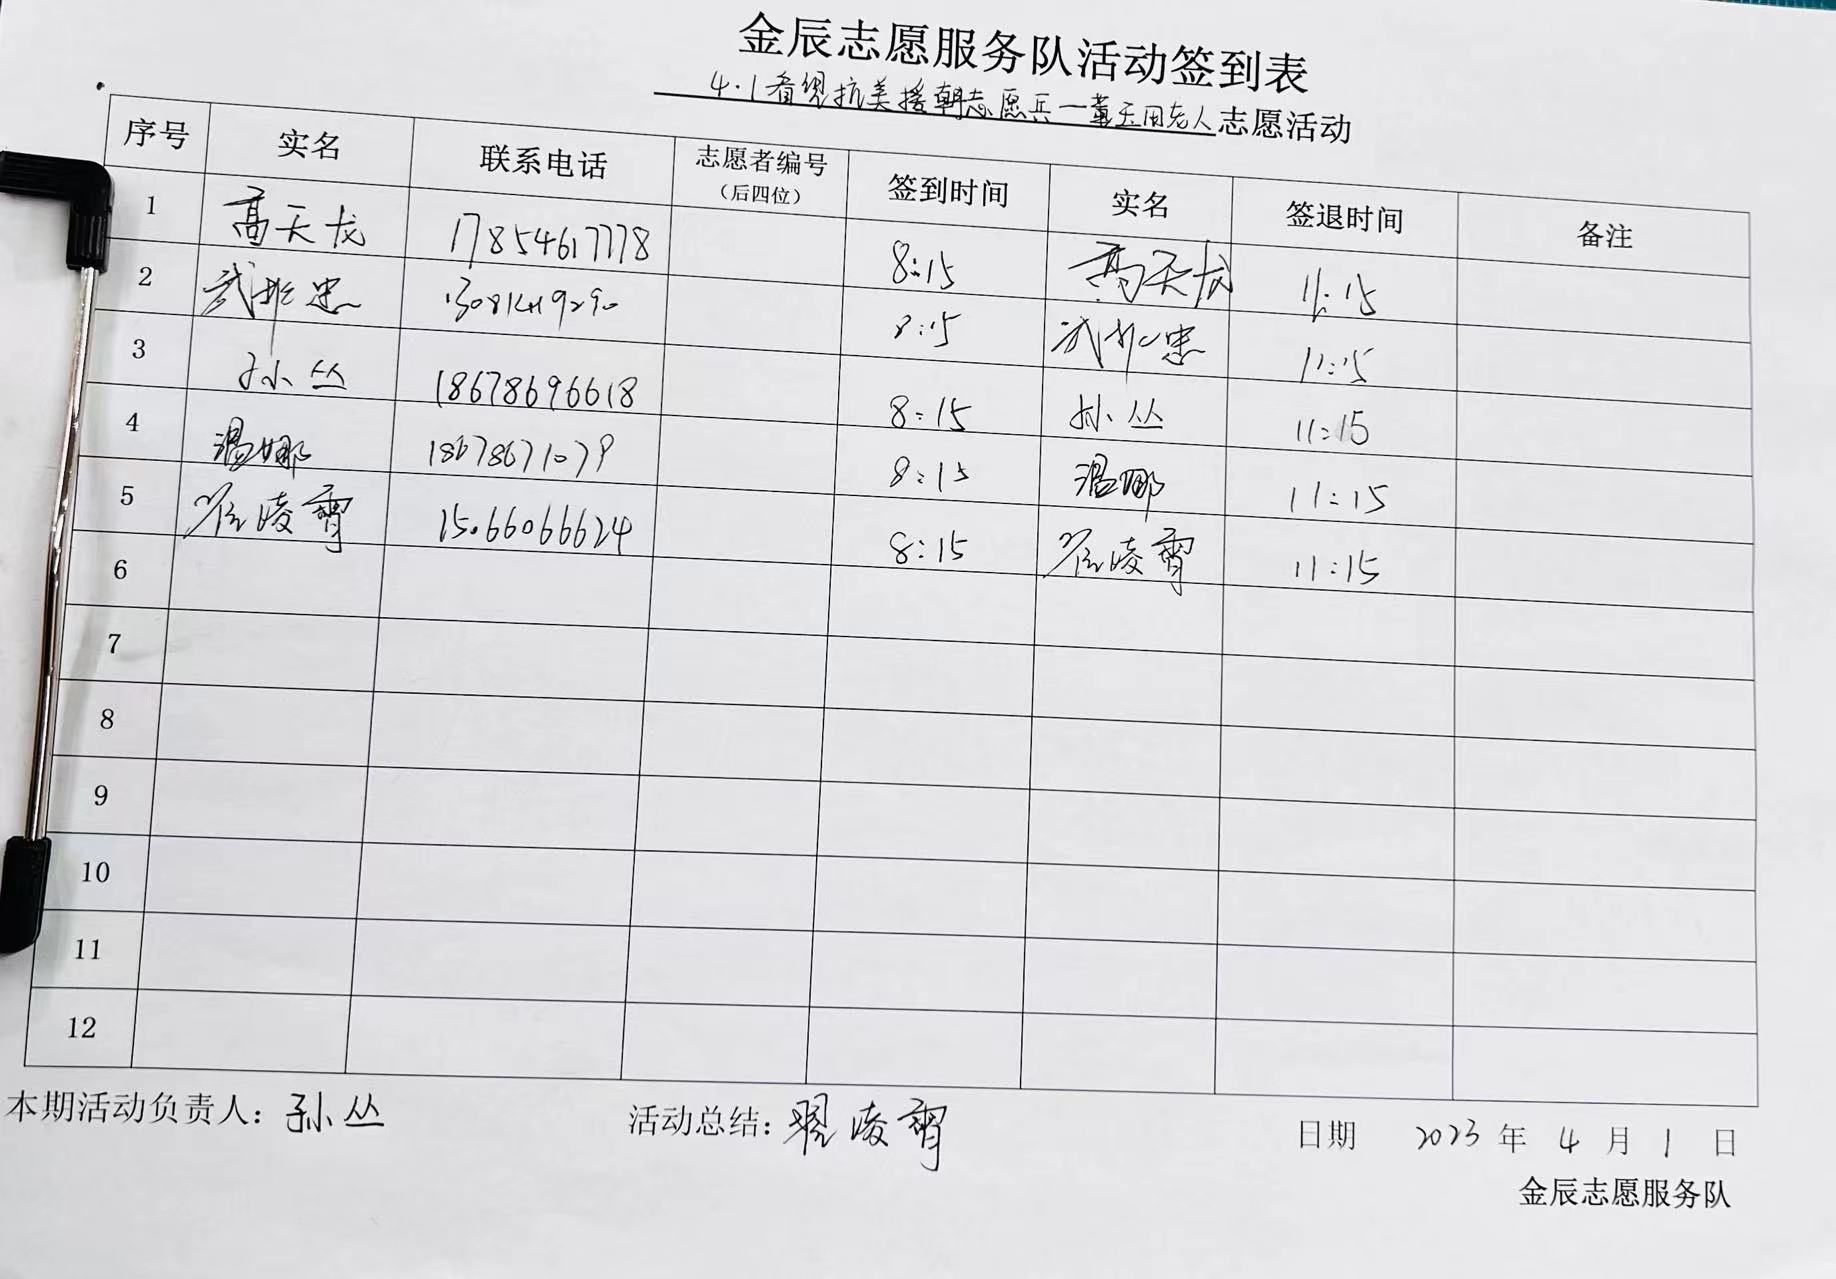 金辰志愿服务队活动签到表
4.1看望抗美援朝志愿兵一董玉田老人志愿活动
序号 实名 联系电话 志愿者编号（后四位） 签到时间 实名 签退时间 备注
1 高天龙 17854617778 8:15 高天龙 11:15
2 武 忠 8:15 武 忠 11:15
3 孙丛 18678696618 8:15 孙丛 11:15
4 温娜 18678671079 8:15 温娜 11:15
5 翟凌霄 15066066624 8:15 翟凌霄 11:15
6
7
8
9
10
11
12
本期活动负责人：孙丛 活动总结：翟凌霄 日期 2023年4月1日
金辰志愿服务队